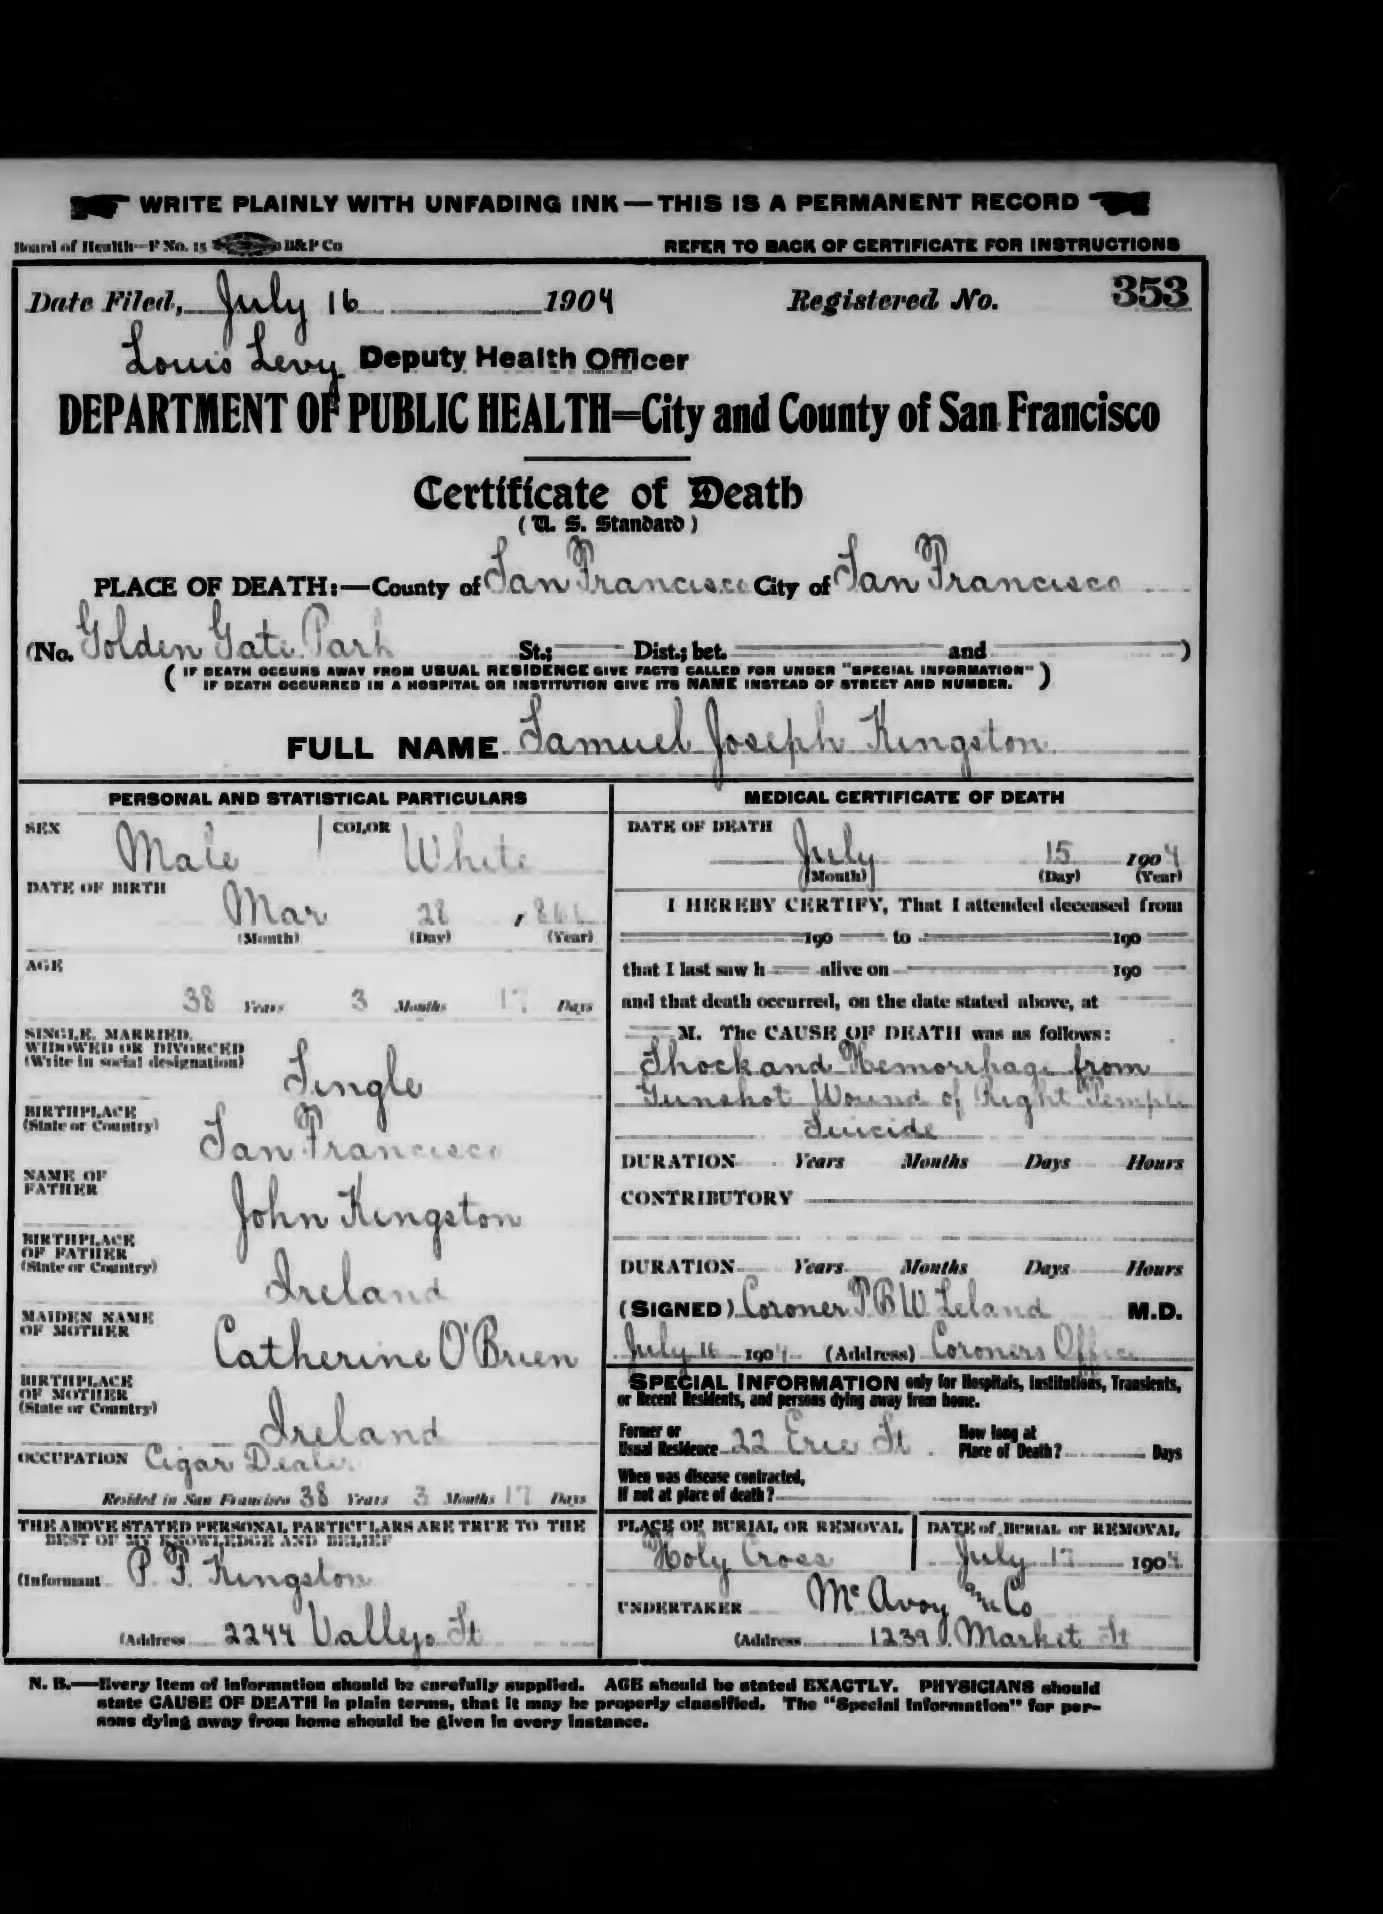 WRITE PLAINLY WITH UNFADING INK — THIS IS A PERMANENT RECORD
Board of Health—F No. 15 B&P Co REFER TO BACK OF CERTIFICATE FOR INSTRUCTIONS
Date Filed, July 16 1904 Registered No. 353
Louis Levy Deputy Health Officer
DEPARTMENT OF PUBLIC HEALTH=City and County of San Francisco
Certificate of Death
( U. S. Standard )
PLACE OF DEATH:—County of San Francisco City of San Francisco
(No. Golden Gate Park St.; Dist.; bet. and )
( IF DEATH OCCURS AWAY FROM USUAL RESIDENCE GIVE FACTS CALLED FOR UNDER "SPECIAL INFORMATION" )
IF DEATH OCCURRED IN A HOSPITAL OR INSTITUTION GIVE ITS NAME INSTEAD OF STREET AND NUMBER.
FULL NAME Samuel Joseph Kingston
PERSONAL AND STATISTICAL PARTICULARS
SEX Male COLOR White
DATE OF BIRTH
Mar 28 , 866
(Month) (Day) (Year)
AGE
38 Years 3 Months 17 Days
SINGLE, MARRIED,
WIDOWED OR DIVORCED
(Write in social designation)
Single
BIRTHPLACE
(State or Country)
San Francisco
NAME OF
FATHER
John Kingston
BIRTHPLACE
OF FATHER
(State or Country)
Ireland
MAIDEN NAME
OF MOTHER
Catherine O'Brien
BIRTHPLACE
OF MOTHER
(State or Country)
Ireland
OCCUPATION Cigar Dealer
Resided in San Francisco 38 Years 3 Months 17 Days
THE ABOVE STATED PERSONAL PARTICULARS ARE TRUE TO THE
BEST OF MY KNOWLEDGE AND BELIEF
(Informant P. F. Kingston
(Address 2244 Vallejo St
MEDICAL CERTIFICATE OF DEATH
DATE OF DEATH
July 15 1904
(Month) (Day) (Year)
I HEREBY CERTIFY, That I attended deceased from
190 to 190
that I last saw h alive on 190
and that death occurred, on the date stated above, at
M. The CAUSE OF DEATH was as follows:
Shock and Hemorrhage from
Gunshot Wound of Right Temple
Suicide
DURATION Years Months Days Hours
CONTRIBUTORY
DURATION Years Months Days Hours
(SIGNED) Coroner T B W Leland M.D.
July 16 1904 (Address) Coroners Office
SPECIAL INFORMATION only for Hospitals, Institutions, Transients,
or Recent Residents, and persons dying away from home.
Former or
Usual Residence 22 Erie St
How long at
Place of Death? Days
When was disease contracted,
If not at place of death?
PLACE OF BURIAL OR REMOVAL
Holy Cross
DATE of BURIAL or REMOVAL
July 17 1904
UNDERTAKER McAvoy & Co
(Address 1239 Market St
N. B.—Every item of information should be carefully supplied. AGE should be stated EXACTLY. PHYSICIANS should
state CAUSE OF DEATH in plain terms, that it may be properly classified. The "Special Information" for per-
sons dying away from home should be given in every instance.